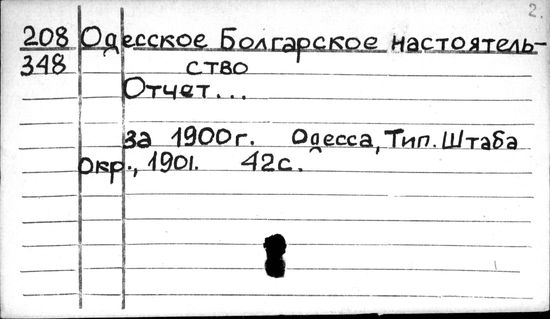 2.
208 Одесское Болгарское настоятель-
348 ство
Отчет...
за 1900г. Одесса, Тип. Штаба
окр., 1901. 42с.